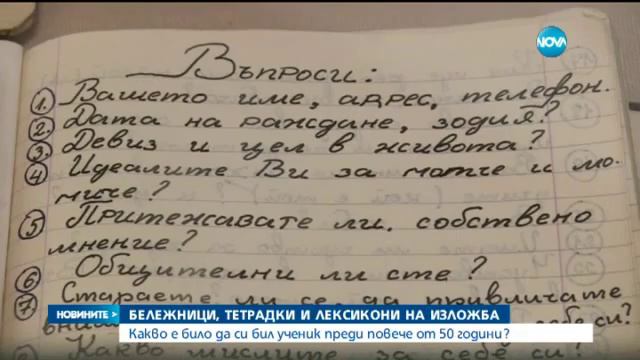 NOVA
Въпроси:
1. Вашето име, адрес, телефон.
2. Дата на раждане, зодия?
3. Девиз и цел в живота?
4 Идеалите Ви за момче и мо-
миче?
5 Притежавате ли собствено
мнение?
6 Общителни ли сте?
7 Стараете ли се да привличате
себе си?
Какво мислите за себе си?
НОВИНИТЕ
БЕЛЕЖНИЦИ, ТЕТРАДКИ И ЛЕКСИКОНИ НА ИЗЛОЖБА
Какво е било да си бил ученик преди повече от 50 години?